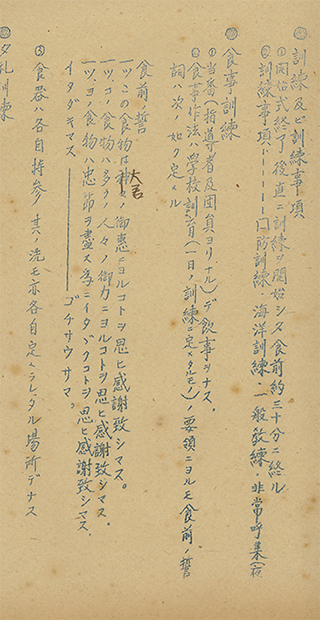 訓練及ビ訓練事項
①開始式終了後直ニ訓練ヲ開始シ夕食前約三十分ニ終ル
②訓練事項ハ――――防訓練・海洋訓練・一般教練・非常呼集(宿
食事訓練
①当番(指導者及団員ヨリナル)デ飲事ヲナス。
②食事作法ハ学校訓育(一日ノ訓練ニ定メタルモノ)ノ要領ニヨルモ食前ノ誓
詞ハ次ノ如ク定メル
食前ノ誓
一ツ、コノ食物は神々ノ御恵ニヨルコトヲ思ヒ感謝致シマス。
大君
一ツ、コノ食物ハ多クノ人々ノ御力ニヨルコトヲ思ヒ感謝致シマス。
一ツ、コノ食物ハ忠節ヲ盡ス為ニイタダクコトヲ思ヒ感謝致シマス、
イタダキマス――――ゴチサウサマ。
③食器ハ各自持参 其ノ洗モ亦各自定メラレタル場所デナス
夕礼訓練